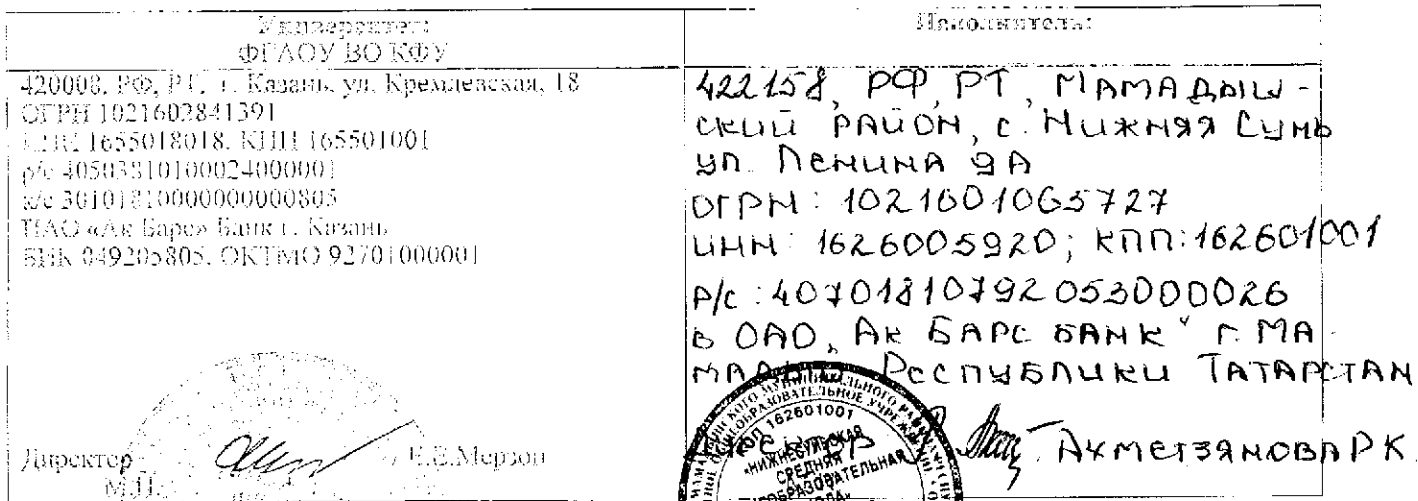 Университет:
ФГАОУ ВО КФУ
420008, РФ, РТ, г. Казань, ул. Кремлевская, 18
ОГРН 1021602841391
ИНН 1655018018, КПП 165501001
р/с 40503810100024000001
к/с 30101810000000000805
ПАО «Ак Барс» Банк г. Казань
БИК 049205805, ОКТМО 92701000001
Директор Е.В.Мерзон
М.П.
Исполнитель:
422158, РФ, РТ, МАМАДЫШ-
СКИЙ РАЙОН, с. Нижняя Сунь
ул. Ленина 9А
ОГРН: 1021601065727
ИНН: 1626005920; КПП: 162601001
Р/с: 40701810792053000026
в ОАО „Ак БАРС БАНК" г. МА-
МАДЫШ Республики ТАТАРСТАН
АХМЕТЗЯНОВА Р.К.
КПП 162601001
«НИЖНЕСУНЬСКАЯ
СРЕДНЯЯ
ОБЩЕОБРАЗОВАТЕЛЬНАЯ
ШКОЛА»